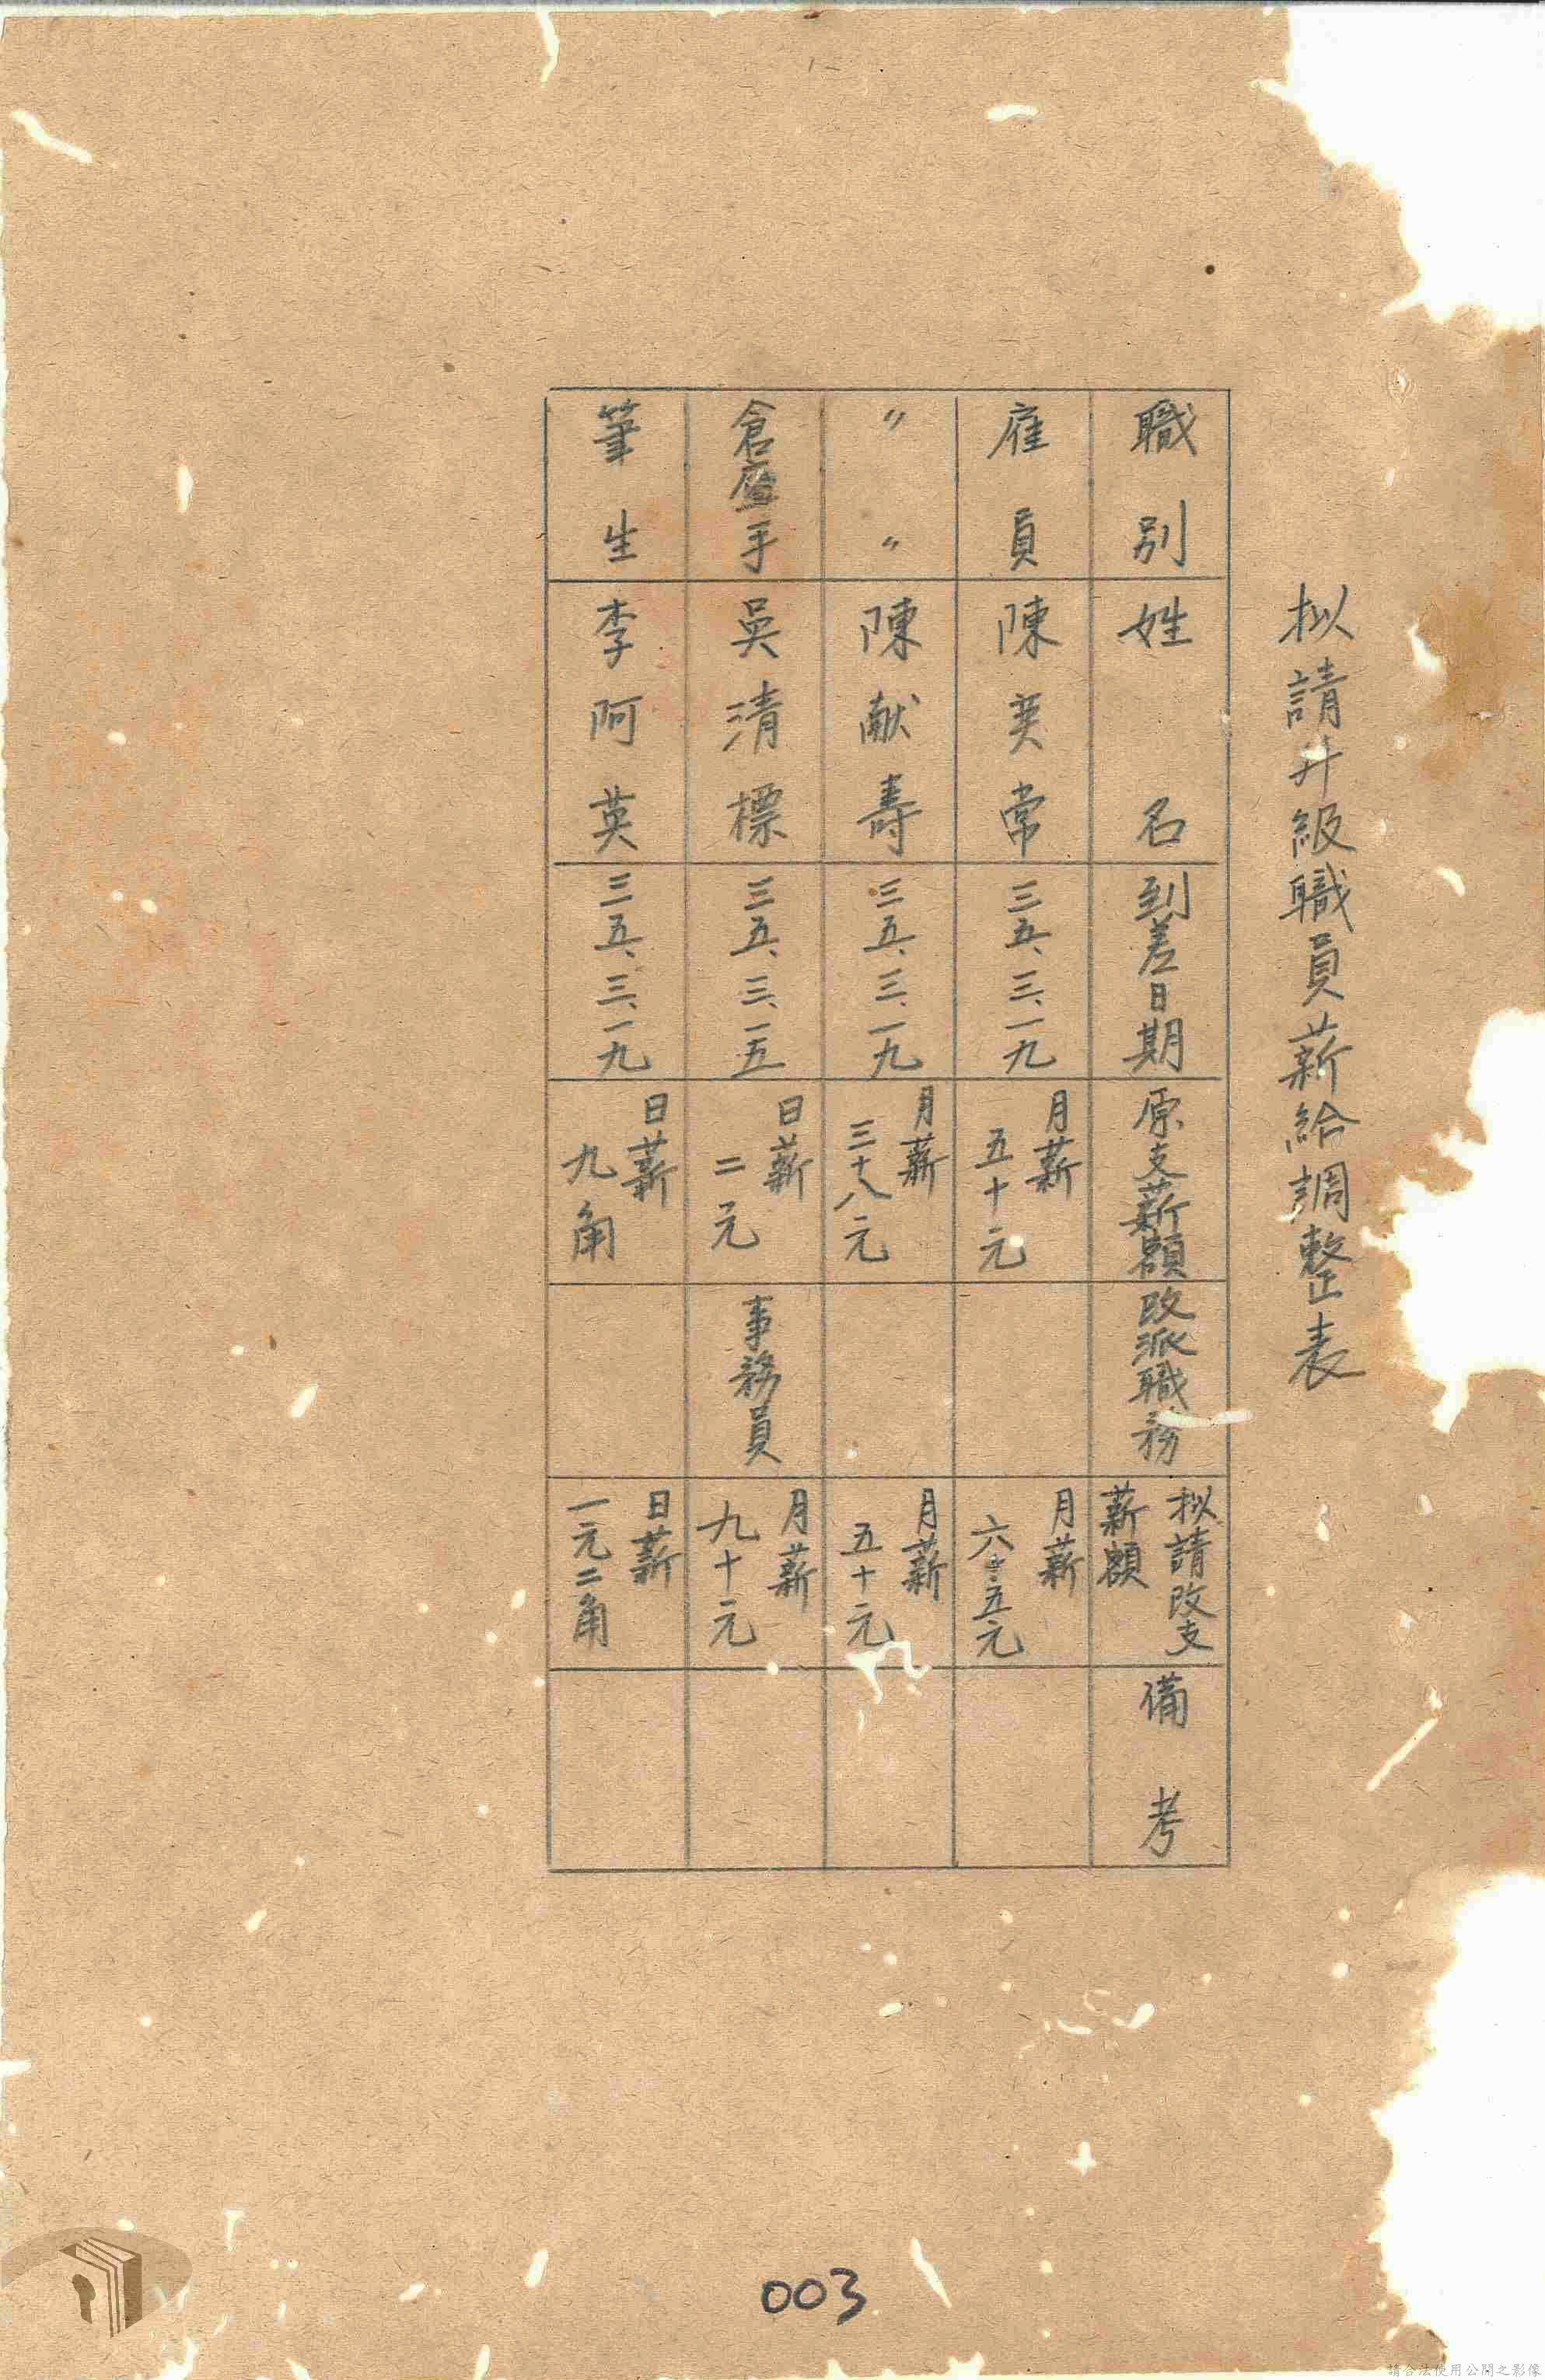 拟請升級職員薪給調整表
職別 姓名 到差日期 原支薪額 改派職務 拟請改支薪額 備考
雇員 陳英常 三五、三、一九 月薪五十元 月薪六十五元
〃〃 陳献壽 三五、三、一九 月薪三十八元 月薪五十元
倉庫手 吳清標 三五、三、一五 日薪二元 事務員 月薪九十元
筆生 李阿英 三五、三、一九 日薪九角 日薪一元二角
003
請合法使用公開之影像